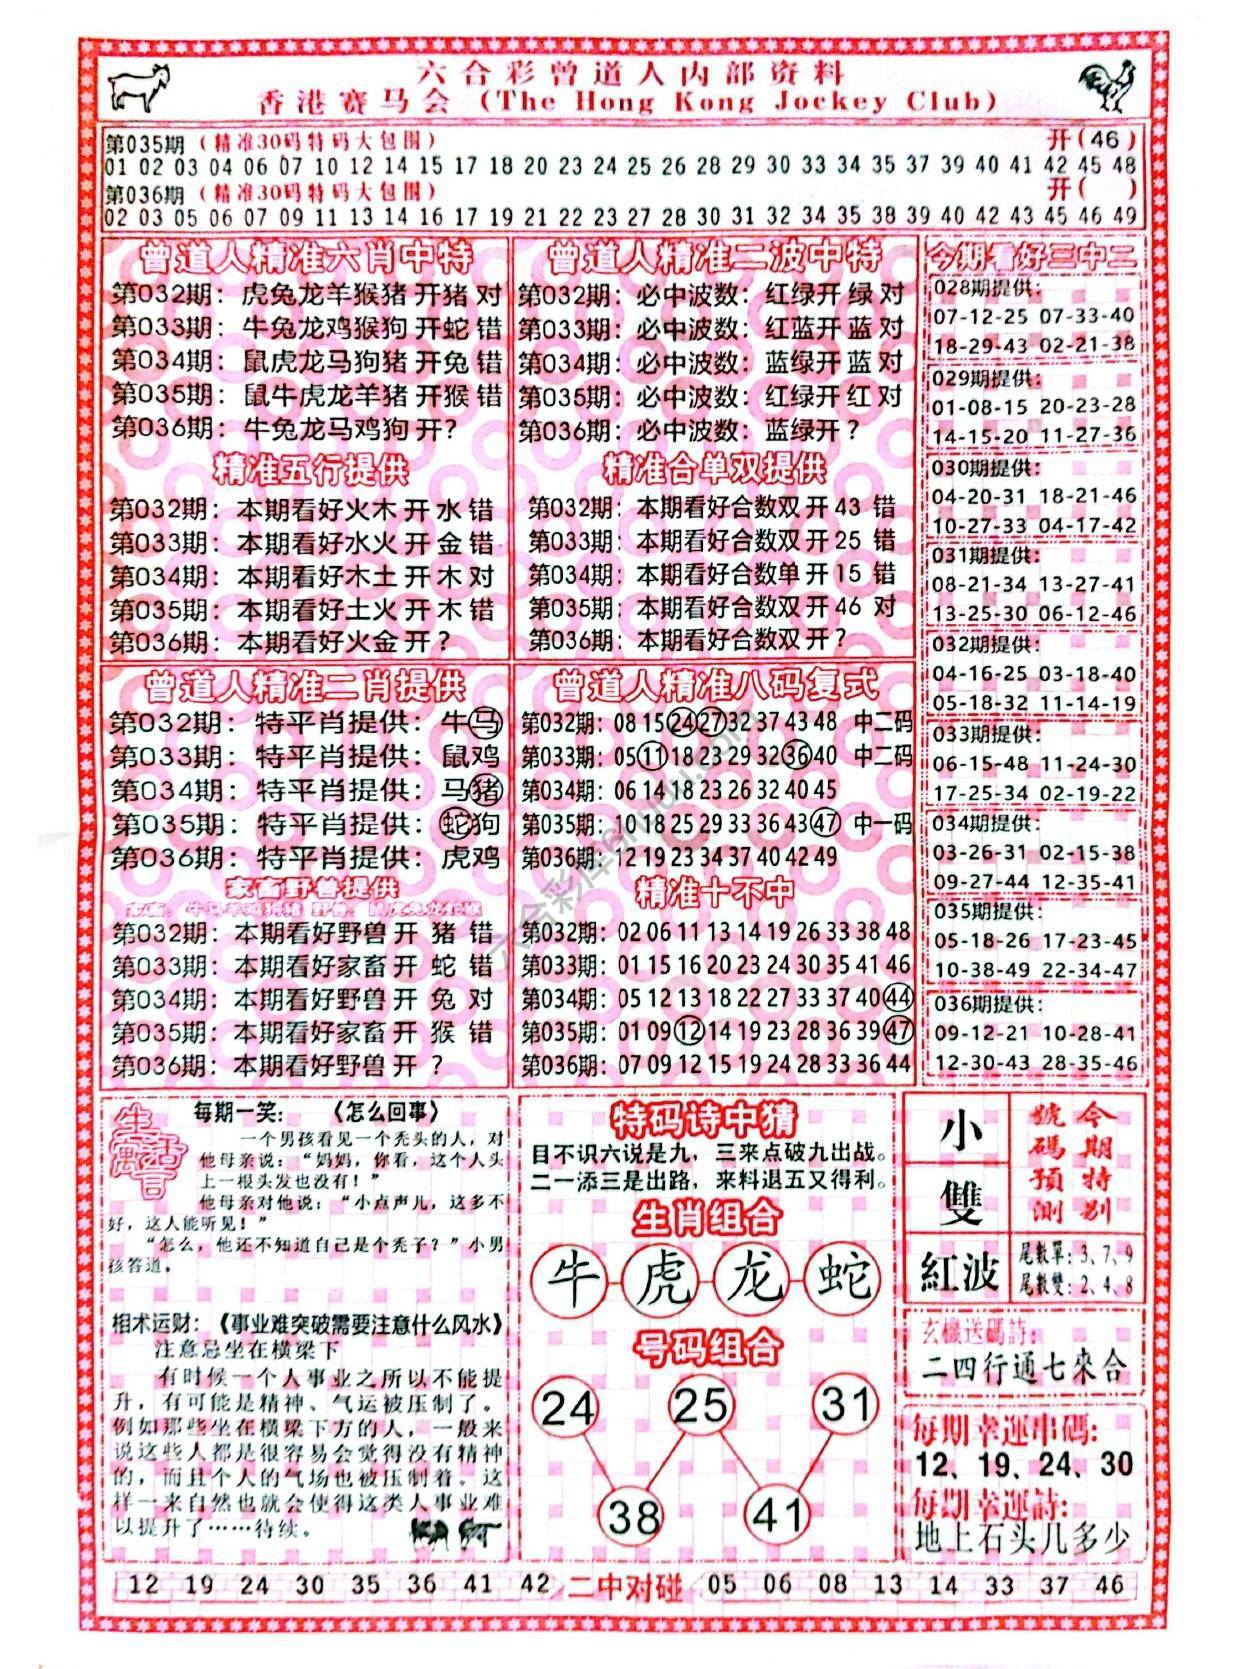 六合彩曾道人内部资料
香港赛马会（The Hong Kong Jockey Club）
第035期（精准30码特码大包围） 开(46)
01 02 03 04 06 07 10 12 14 15 17 18 20 23 24 25 26 28 29 30 33 34 35 37 39 40 41 42 45 48
第036期（精准30码特码大包围） 开( )
02 03 05 06 07 09 11 13 14 16 17 19 21 22 23 27 28 30 31 32 34 35 38 39 40 42 43 45 46 49
曾道人精准六肖中特
第032期：虎兔龙羊猴猪开猪 对
第033期：牛兔龙鸡猴狗 开蛇 错
第034期：鼠虎龙马狗猪 开兔 错
第035期：鼠牛虎龙羊猪 开猴 错
第036期：牛兔龙马鸡狗 开？
精准五行提供
第032期：本期看好火木 开 水 错
第033期：本期看好水火 开 金 错
第034期：本期看好木土 开 木 对
第035期：本期看好土火 开 木 错
第036期：本期看好火金 开？
曾道人精准二波中特
第032期：必中波数：红绿开 绿 对
第033期：必中波数：红蓝开 蓝 对
第034期：必中波数：蓝绿开 蓝 对
第035期：必中波数：红绿开 红 对
第036期：必中波数：蓝绿开？
精准合单双提供
第032期：本期看好合数双 开 43 错
第033期：本期看好合数双 开 25 错
第034期：本期看好合数单 开 15 错
第035期：本期看好合数双 开 46 对
第036期：本期看好合数双 开？
今期看好三中二
028期提供：
07-12-25 07-33-40
18-29-43 02-21-38
029期提供：
01-08-15 20-23-28
14-15-20 11-27-36
030期提供：
04-20-31 18-21-46
10-27-33 04-17-42
031期提供：
08-21-34 13-27-41
13-25-30 06-12-46
032期提供：
04-16-25 03-18-40
05-18-32 11-14-19
033期提供：
06-15-48 11-24-30
17-25-34 02-19-22
034期提供：
03-26-31 02-15-38
09-27-44 12-35-41
035期提供：
05-18-26 17-23-45
10-38-49 22-34-47
036期提供：
09-12-21 10-28-41
12-30-43 28-35-46
曾道人精准二肖提供
第032期：特平肖提供：牛马
第033期：特平肖提供：鼠鸡
第034期：特平肖提供：马猪
第035期：特平肖提供：蛇狗
第036期：特平肖提供：虎鸡
家畜野兽提供
家畜：牛马羊鸡狗猪 野兽：鼠虎兔龙蛇猴
第032期：本期看好野兽 开 猪 错
第033期：本期看好家畜 开 蛇 错
第034期：本期看好野兽 开 兔 对
第035期：本期看好家畜 开 猴 错
第036期：本期看好野兽 开 ？
曾道人精准八码复式
第032期：08 15 24 27 32 37 43 48 中二码
第033期：05 11 18 23 29 32 36 40 中二码
第034期：06 14 18 23 26 32 40 45
第035期：10 18 25 29 33 36 43 47 中一码
第036期：12 19 23 34 37 40 42 49
精准十不中
第032期：02 06 11 13 14 19 26 33 38 48
第033期：01 15 16 20 23 24 30 35 41 46
第034期：05 12 13 18 22 27 33 37 40 44
第035期：01 09 12 14 19 23 28 36 39 47
第036期：07 09 12 15 19 24 28 33 36 44
每期一笑： 《怎么回事》
一个男孩看见一个秃头的人，对
他母亲说：“妈妈，你看，这个人头
上一根头发也没有！”
他母亲对他说：“小点声儿，这多不
好，这人能听见！”
“怎么，他还不知道自己是个秃子？”小男
孩答道。
相术运财：《事业难突破需要注意什么风水》
注意忌坐在横梁下
有时候一个人事业之所以不能提
升，有可能是精神、气运被压制了。
例如那些坐在横梁下方的人，一般来
说这些人都是很容易会觉得没有精神
的，而且个人的气场也被压制着。这
样一来自然也就会使得这类人事业难
以提升了……待续。
特码诗中猜
目不识六说是九，三来点破九出战。
二一添三是出路，来料退五又得利。
生肖组合
牛 虎 龙 蛇
号码组合
24 25 31
38 41
小
雙
紅波
今期特別
號碼預測
尾數單：3、7、9
尾數雙：2、4、8
玄機送碼詩：
二四行通七來合
每期幸運串碼：
12、19、24、30
每期幸運詩：
地上石头几多少
12 19 24 30 35 36 41 42 二中对碰 05 06 08 13 14 33 37 46